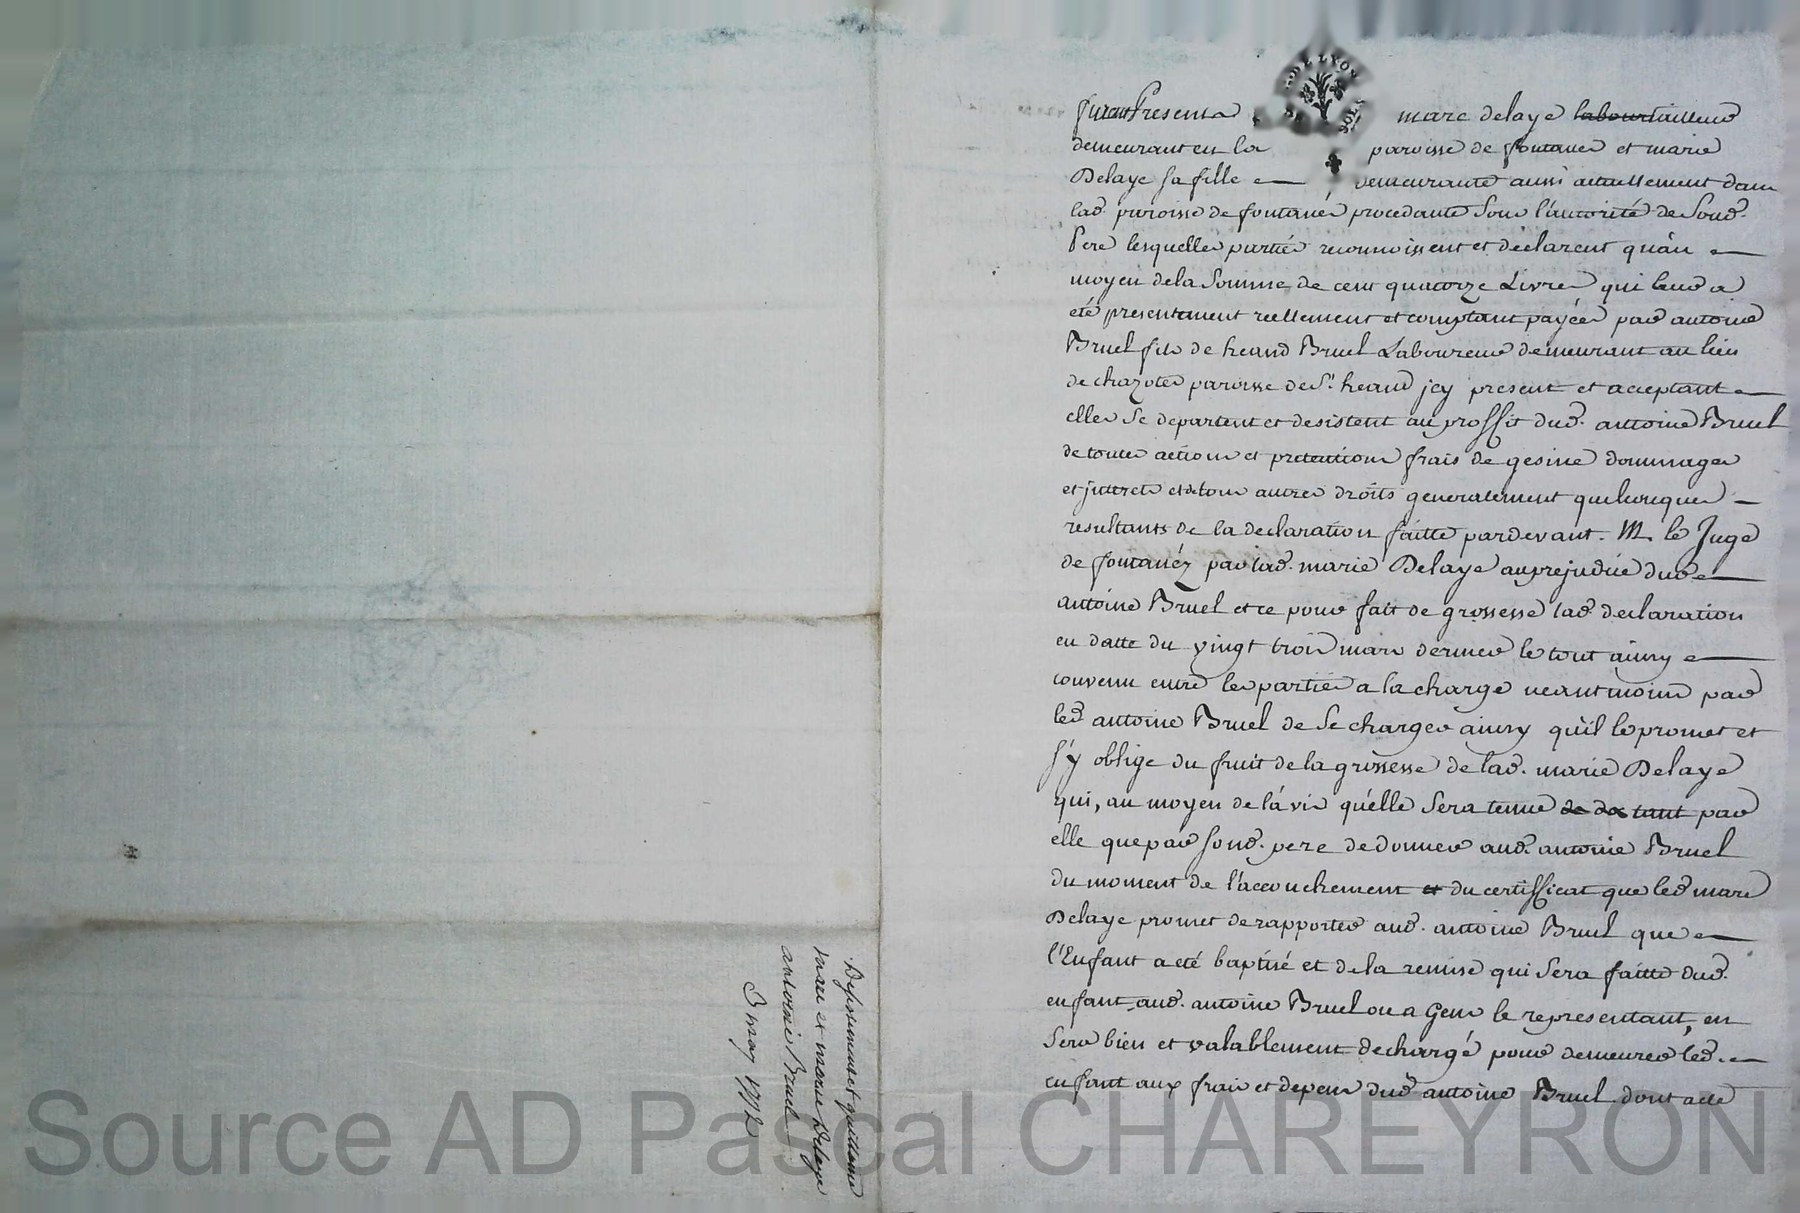 furent Presents marc delaye labourtailleur
demeurant en la paroisse de fontanes et marie
Delaye sa fille demeurante aussi actuellement dans
lad. paroisse de fontanés procedante sous l'autorité de sond.
Pere lesquelles parties reconnoissent et déclarent qu'au
moyen de la somme de cent quatorze Livres qui leur a
été présentement réellement et comptant payée par antoine
Bruel fils de heand Bruel Laboureur demeurant au lieu
de chazotes paroisse de St. heand jcy present et acceptant
elles se departent et desistent au proffit dud. antoine Bruel
de toutes actions et pretentions frais de gesine dommages
et jnterets et de tous autres droits generalement quelconques
resultants de la declaration faitte pardevant M. le Juge
de fontanéz par lad. marie Delaye au prejudice dud.
antoine Bruel et ce pour fait de grossesse lad. declaration
en datte du vingt trois mars dernier le tout ainsy
convenu entre les parties a la charge neantmoins par
led. antoine Bruel de se charger ainsy qu'il le promet et
s'y oblige du fruit de la grossesse de lad. marie Delaye
qui, au moyen de l'avis qu'elle sera tenue de de tant par
elle que par sond. pere de donner aud. antoine Bruel
du moment de l'accouchement et du certifficat que led. marc
Delaye promet de rapporter aud. antoine Bruel que
l'Enfant a eté baptisé et de la remise qui sera faitte dud.
enfant aud. antoine Bruel ou a Gens le representant, en
sera bien et valablement dechargé pour demeurer led.
enfant aux frais et depens dud. antoine Bruel dont acte
Desistement et quittance
marc et marie Delaye
antoine Bruel
3 may 1772
Source AD Pascal CHAREYRON